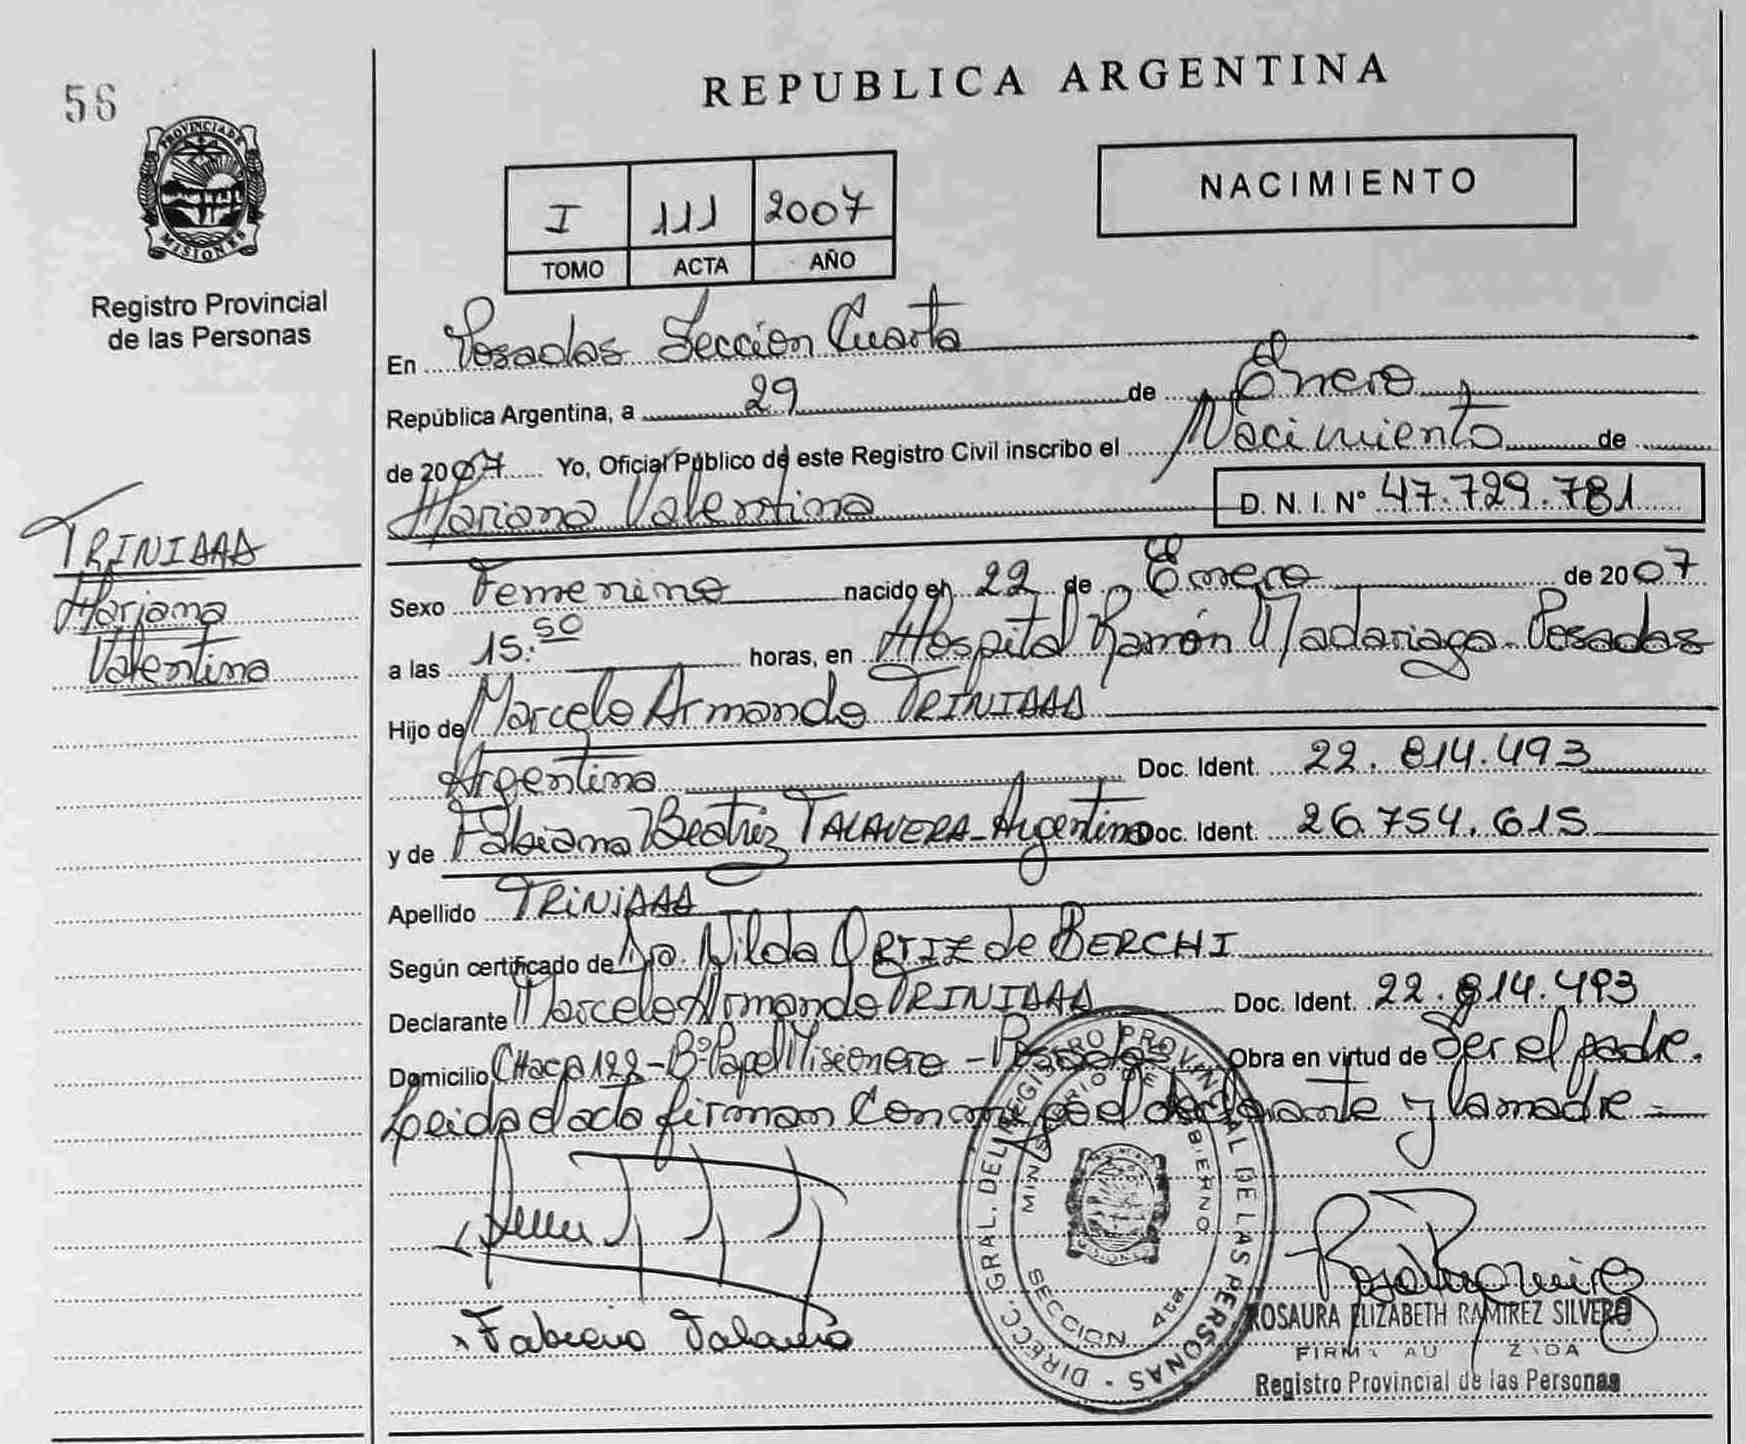 56
PROVINCIA DE
MISIONES
Registro Provincial
de las Personas
TRINIDAD
Mariana
Valentina
REPUBLICA ARGENTINA
I 111 2007
TOMO ACTA AÑO
NACIMIENTO
En Posadas Sección Cuarta
República Argentina, a 29 de Enero
de 2007 Yo, Oficial Público de este Registro Civil inscribo el Nacimiento de
Mariana Valentina D. N. I. Nº 47.729.781
Sexo Femenino nacido en 22 de Enero de 2007
a las 15:50 horas, en Hospital Ramón Madariaga - Posadas
Hijo de Marcelo Armando TRINIDAD
Argentino Doc. Ident. 22.814.493
y de Fabiana Beatriz TALAVERA - Argentina Doc. Ident. 26.754.615
Apellido TRINIDAD
Según certificado de Dra. Nilda ORTIZ de BERCHI
Declarante Marcelo Armando TRINIDAD Doc. Ident. 22.814.493
Domicilio CHACO 122 - Bº Papel Misionero - Posadas Obra en virtud de Ser el padre.
Leida el acta firman Conmigo el declarante y la madre -
DIRECC. GRAL. DEL REGISTRO PROVINCIAL DE LAS PERSONAS
MINISTERIO DE GOBIERNO
MISIONES
SECCION 4ta
ROSAURA ELIZABETH RAMIREZ SILVERO
FIRMA AUTORIZADA
Registro Provincial de las Personas